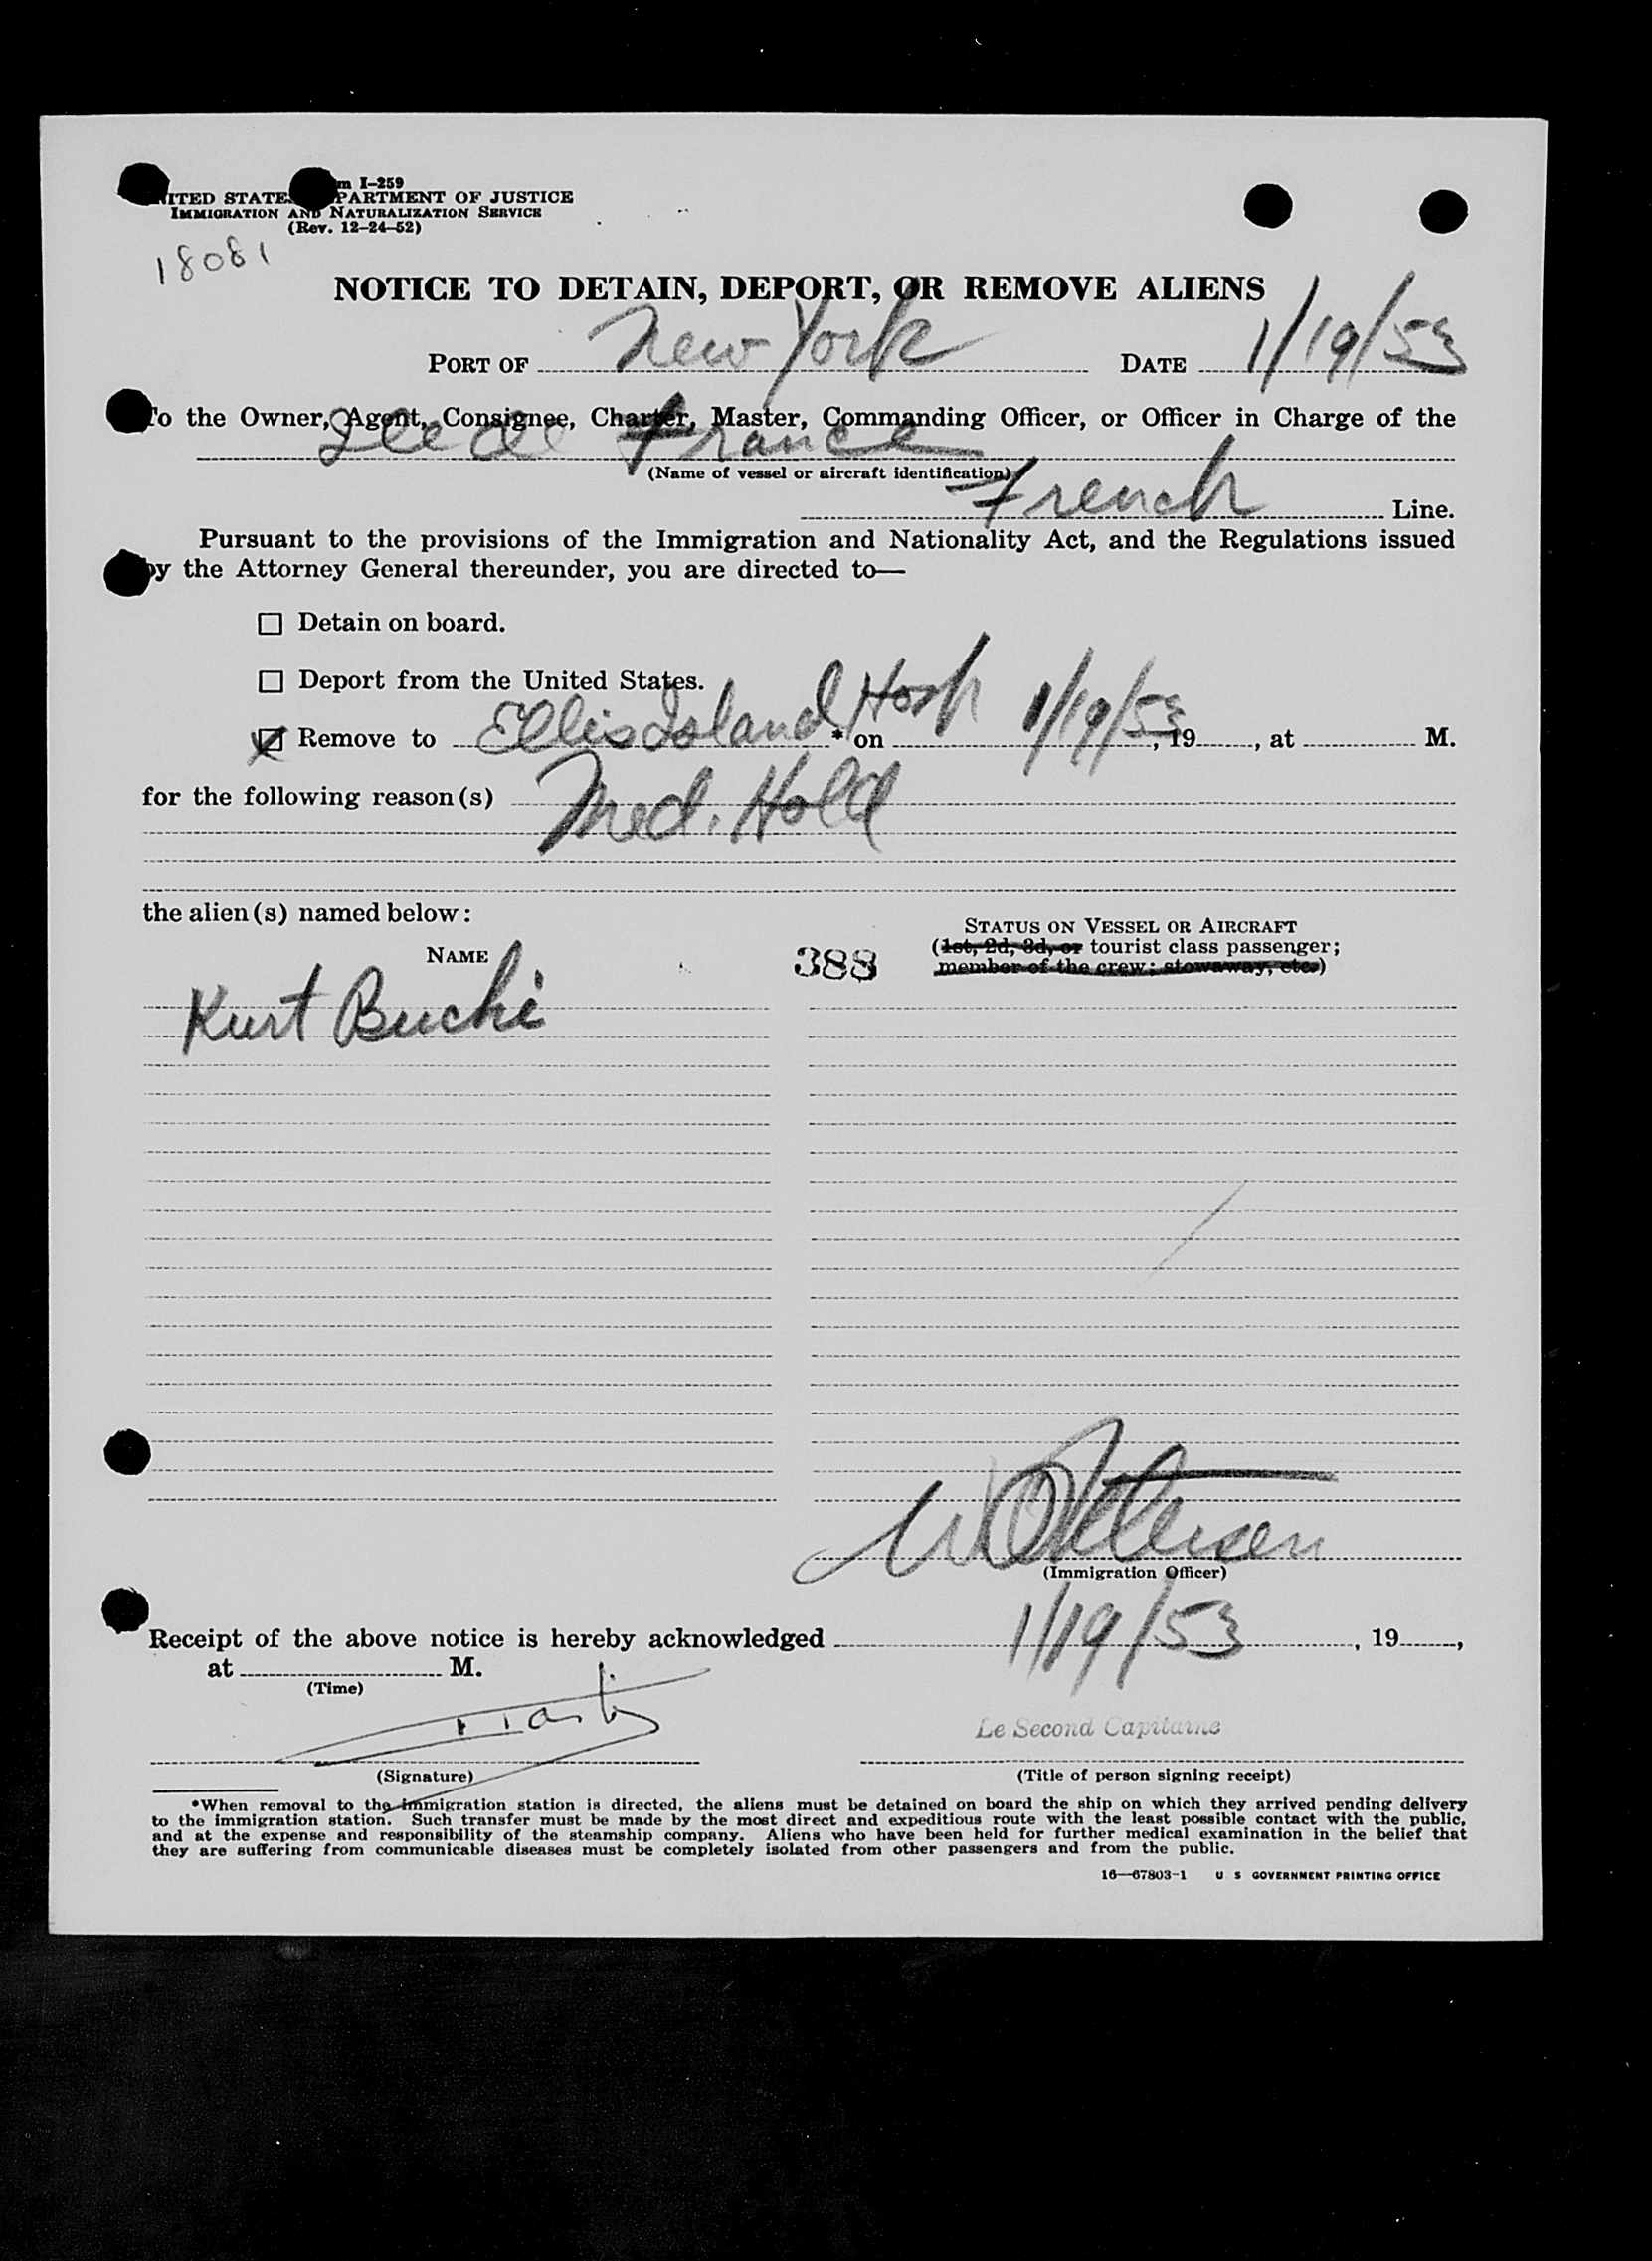 m I-259
ITED STATE PARTMENT OF JUSTICE
IMMIGRATION AND NATURALIZATION SERVICE
(Rev. 12-24-52)
18081
NOTICE TO DETAIN, DEPORT, OR REMOVE ALIENS
PORT OF New York DATE 1/19/53
To the Owner, Agent, Consignee, Charter, Master, Commanding Officer, or Officer in Charge of the
Ile de France
(Name of vessel or aircraft identification)
French Line.
Pursuant to the provisions of the Immigration and Nationality Act, and the Regulations issued
by the Attorney General thereunder, you are directed to—
☐ Detain on board.
☐ Deport from the United States.
☒ Remove to Ellis Island Hosp * on 1/19/53, 19, at M.
for the following reason(s) Med. Hold
the alien(s) named below:
NAME
388
STATUS ON VESSEL OR AIRCRAFT
(1st, 2d, 3d, or tourist class passenger;
member of the crew; stowaway, etc.)
Kurt Buchi
(Immigration Officer)
Receipt of the above notice is hereby acknowledged 1/19/53, 19,
at M.
(Time)
Le Second Capitaine
(Signature)
(Title of person signing receipt)
*When removal to the immigration station is directed, the aliens must be detained on board the ship on which they arrived pending delivery
to the immigration station. Such transfer must be made by the most direct and expeditious route with the least possible contact with the public,
and at the expense and responsibility of the steamship company. Aliens who have been held for further medical examination in the belief that
they are suffering from communicable diseases must be completely isolated from other passengers and from the public.
16—67803-1 U S GOVERNMENT PRINTING OFFICE